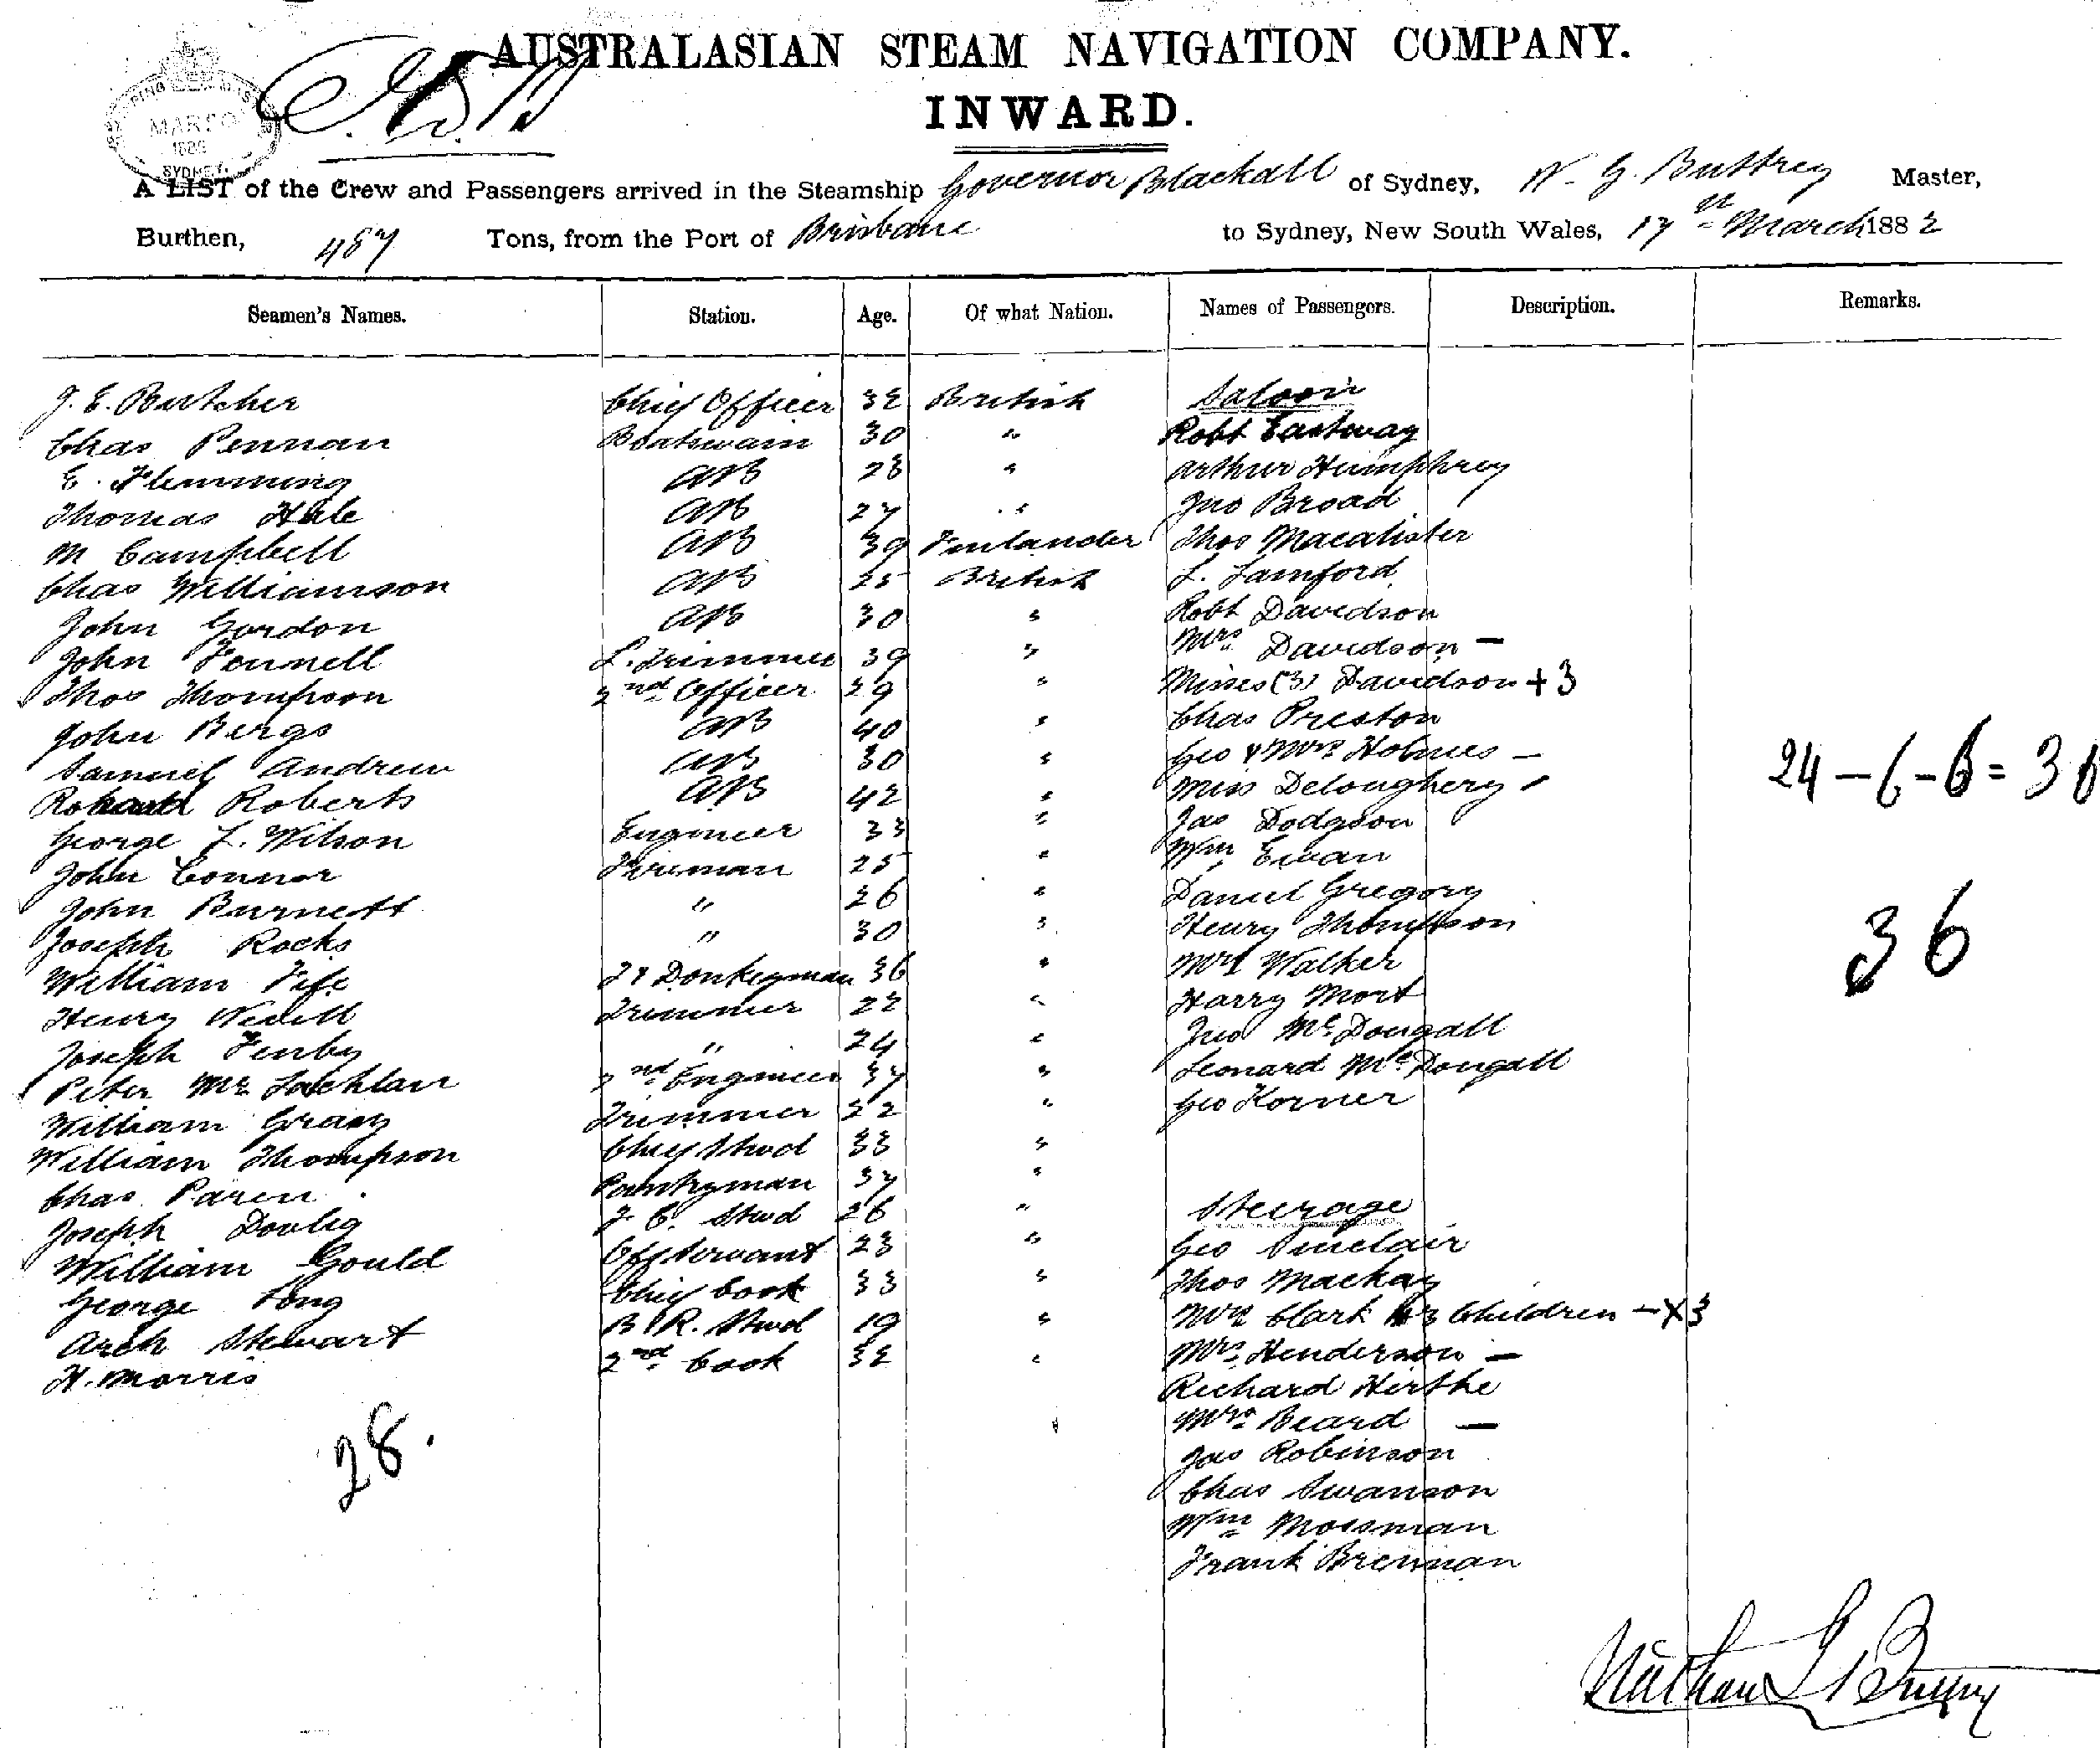 AUSTRALASIAN STEAM NAVIGATION COMPANY.
INWARD.
SYDNEY
A LIST of the Crew and Passengers arrived in the Steamship Governor Blackall of Sydney, N. G. Buttrey Master,
Burthen, 487 Tons, from the Port of Brisbane to Sydney, New South Wales, 17th March 1882
Seamen's Names. Station. Age. Of what Nation. Names of Passengers. Description. Remarks.
J. E. Butcher Chief Officer 32 British Saloon
Chas Pennan Boatswain 30 " Robt Eastway
E. Flemming AB 28 " Arthur Humphrey
Thomas Hale AB 27 " Jno Broad
M Campbell AB 39 Finlander Thos Macalister
Chas Williamson AB 25 British L. Lamford
John Gordon AB 30 " Robt Davidson
John Fennell L. Trimmer 39 " Mrs Davidson —
Thos Thompson 2nd Officer 29 " Misses (3) Davidson + 3
John Bergs AB 40 " Chas Preston
Samuel Andrew AB 30 " Geo & Mrs Holmes —
Roberts AB 42 " Miss Deloughery
George L. Wilson Engineer 33 " Jas Dodgson
John Connor Fireman 25 " Wm Ewan
John Burnett " 26 " Daniel Gregory
Joseph Rocks " 30 " Henry Thompson
William Fife F & Donkeyman 36 " Mrs Walker
Henry Nevill Trimmer 22 " Harry Mort
Joseph Fenby " 24 " Jno McDougall
Peter McLachlan 2nd Engineer 37 " Leonard McDougall
William Gray Trimmer 22 " Geo Horner
William Thompson Chief Stwd 33 "
Chas Paren Pantryman 37 "
Joseph F. C. Stwd 26 " Steerage
William Gould Off Servant 23 " Geo Sinclair
George Long Chief Cook 33 " Thos Mackay
Arch Stewart B R. Stwd 19 " Mrs Clark & 3 Children — X 3
H. Morris 2nd Cook 32 " Mrs Henderson —
Richard Hirthe
Mrs Beard —
Jas Robinson
Chas Swanson
Wm Mossman
Frank Brennan
28.
24 — 6 - 6 = 36
36
Nathan G Buttrey